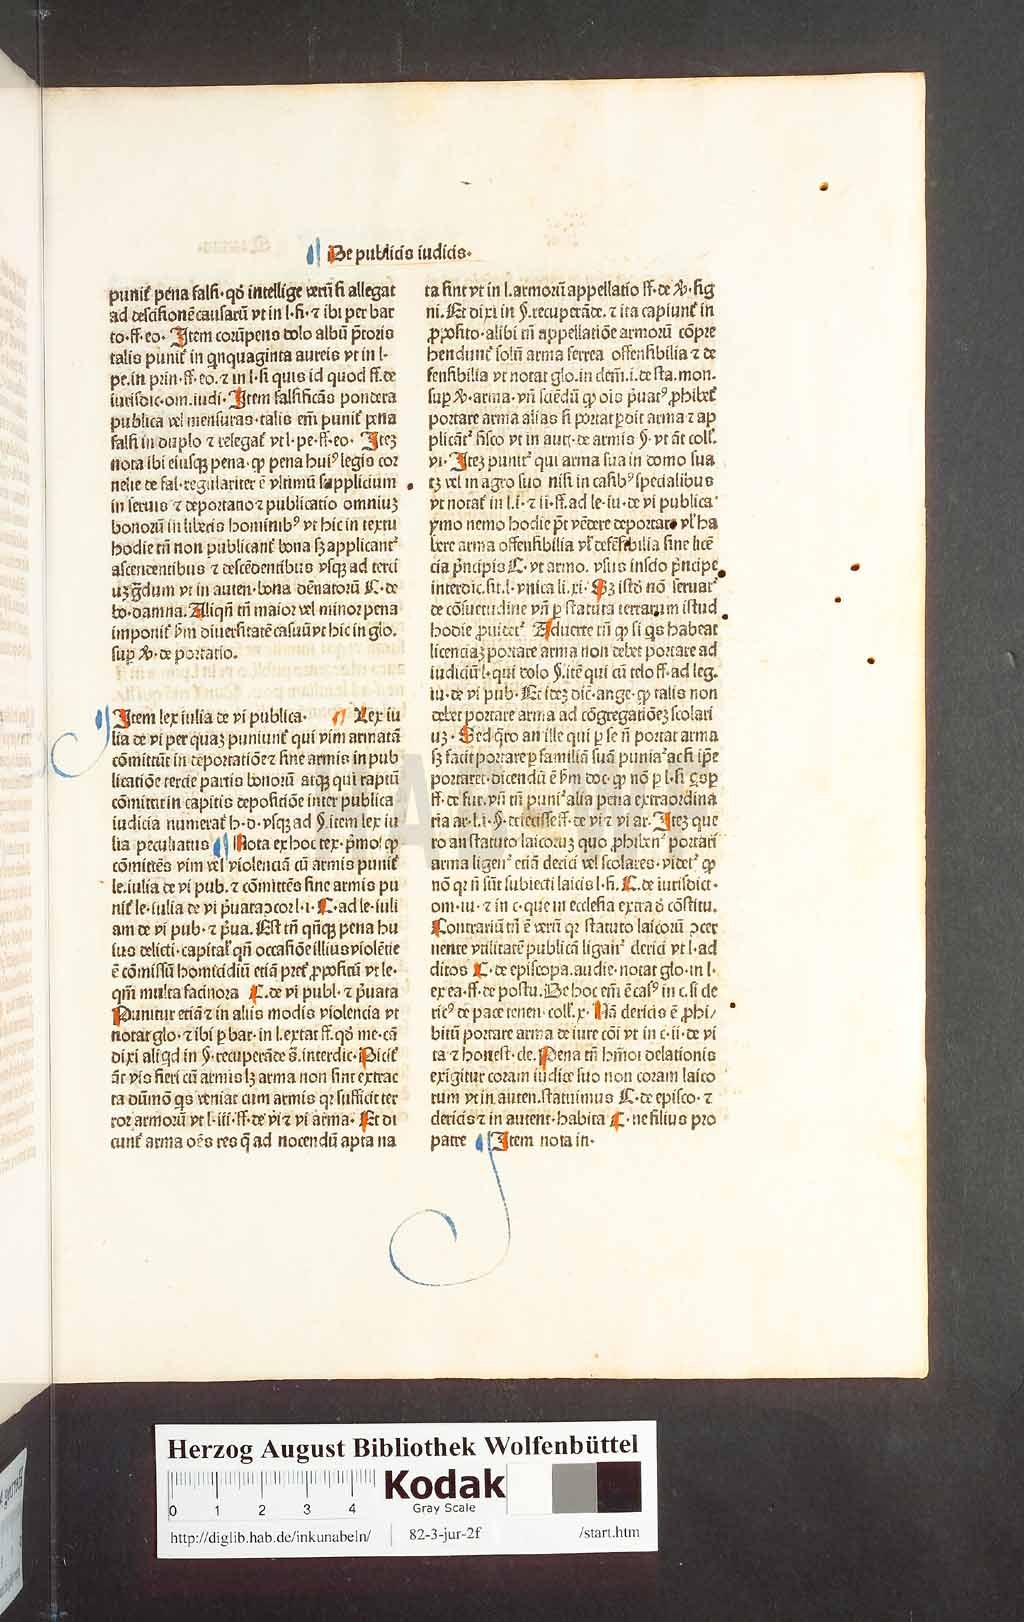 De publicis iudicis.
punit᷑ pena falsi · qđ intellige verū si allegat
ad descisionē causarū vt in l · fi · ⁊ ibi per bar
to · ff · eo · Item corūpens dolo albū p̄toris
talis punit᷑ in qnquaginta aureis vt in l ·
pe · in prin · ff · eo · ⁊ in l · si quis id quod ff · de
iurisdic · om · iudi · Item falsificās pondera
publica vel mensuras · talis em̄ punit᷑ pena
falsi in duplo ⁊ relegat᷑ vt l · pe · ff · eo · Itez
nota ibi eiusqꝫ pena · ꝙ pena huiꝰ legis cor
nelie de fal · regulariter ē vltimū supplicium
in seruis ⁊ deportatio ⁊ publicatio omniuz
bonorū in liberis hominibꝰ vt hic in textu
hodie tn̄ non publicant᷑ bona sꝫ applicant᷑
ascendentibus ⁊ descēdentibus vsqꝫ ad terci
uꝫ g̈dum vt in auten · bona dēnatorū C · de
bo · damna · Aliqn̄ tn̄ maior vel minor pena
imponit᷑ ẜm diuersitatē casuū vt hic in glo ·
sup v̉ · de portatio ·
Item lex iulia de vi publica · Lex iu
lia de vi per quaꝫ puniunt᷑ qui vim armatā
cōmittūt in deportatiōe ⁊ sine armis in pub
licatiōe tercie partis bonorū atqꝫ qui raptū
cōmittūt in capitis depositiōe inter publica
iudicia numerat᷑ h · d · vsqꝫ ad §. item lex iu
lia peculiatus Nota ex hoc tex · p̄mo! ꝙ
cōmittēs vim vel violenciā cū armis punit᷑
le · iulia de vi pub · ⁊ cōmittēs sine armis pu
nit᷑ le · iulia de vi p̄uata ↄcor l · i · C · ad le · iuli
am de vi pub · ⁊ p̄ua · Est tn̄ qn̄qꝫ pena hu
ius delicti · capital᷑ qn̄ occasiōe illius violētie
ē cōmissū homicidiū etiā pret᷑ ꝓpositū vt le ·
qm̄ multa facinora C · de vi publ · ⁊ p̄uata
Punitur etiā ⁊ in aliis modis violencia vt
notat glo · ⁊ ibi ꝑ bar · in l · extat ff · qđ me · cā
dixi aliqd in §. recuperāde s̄ · interdic · Dicit᷑
āt vis fieri cū armis lꝫ arma non sint extrac
ta dūmō qs veniat cum armis qꝛ sufficit ter
ror armorū vt l · iii · ff · de vi ⁊ vi arma · Et di
cunt᷑ arma oēs res q̄ ad nocendū apta na
ta sint vt in l · armorū appellatio ff · de v̉ · sig
ni · Et dixi in §. recuperāde · ⁊ ita capiunt᷑ in
ꝓposito · alibi tn̄ appellatiōe armorū cōpre
hendunt᷑ solū arma ferrea offensibilia ⁊ de
fensibilia vt notat glo · in dem̄ · i · de sta · mon ·
sup v̉ · arma · vn̄ sciēdū ꝙ ois p̄uatꝰ ꝓhibet᷑
portare arma alias si portat ꝑdit arma ⁊ ap
plicāt᷑ fisco vt in aut · de armis §. vt āt coll᷑ ·
vi · Itez punit᷑ qui arma sua in domo sua
tꝫ vel in agro suo nisi in casibꝰ specialibus
vt notat᷑ in l · i · ⁊ ii · ff · ad le · iu · de vi publica
ymo nemo hodie p̄t vēdere deportare vl᷑ ha
bere arma offensibilia vl᷑ defēsibilia sine licē
cia p̄ncipis C · vt armo · vsus inscio p̄ncipe
interdic · sit · l · vnica li · xi · Sꝫ istđ nō seruat᷑
de cōsuetudine vn̄ ꝑ statuta terrarum istud
hodie ꝓuidet᷑ Aduerte tn̄ ꝙ si qs habeat
licenciaꝫ portare arma non debet portare ad
iudiciū l · qui dolo §. itē qui cū telo ff · ad leg ·
iu · de vi pub · Et idez dic̄ · ange · ꝙ talis non
debet portare arma ad cōgregatiōeꝫ scolari
uꝫ · Sed q̄ro an ille qui ꝑ se n̄ portat arma
sꝫ facit portare ꝑ familiā suā puniat᷑ ac si ip̄e
portaret · dicendū ē ẜm doc · ꝙ nō ꝑ l · si
ff · de fur · vn̄ tn̄ punit᷑ alia pena extraordina
ria ar · l · i · §. deiecisse ff · de vi ⁊ vi ar · Itez que
ro an statuto laicoruꝫ quo ꝓhibent᷑ portari
arma ligent᷑ etiā clerici vel scolares · videt᷑ ꝙ
nō qꝛ n̄ sūt subiecti laicis l · fi · C · de iurisdict ·
om · iu · ⁊ in c · que in ecclesia extra đ cōstitu ·
Contrariū tn̄ ē verū qꝛ statuto laicorū ↄcer
nente vtilitatē publicā ligant᷑ clerici vt l · ad
dictos C · de episcopa · audie · notat glo · in l ·
ex ea · ff · de postu · De hoc em̄ ē casꝰ in c · si cle
ricꝰ de pace tenen · coll᷑ · x · Nā clericis ē ꝓhi/
bitū portare arma de iure cōi vt in c · ii · de vi
ta ⁊ honest · cle · Pena tn̄ hm̄oi delationis
exigitur coram iudice suo non coram laico
rum vt in auten · statuimus C · de episco · ⁊
clericis ⁊ in autent · habita C · ne filius pro
patre Item nota in ·
Herzog August Bibliothek Wolfenbüttel
0 1 2 3 4
Kodak
Gray Scale
http://diglib.hab.de/inkunabeln/ 82-3-jur-2f /start.htm